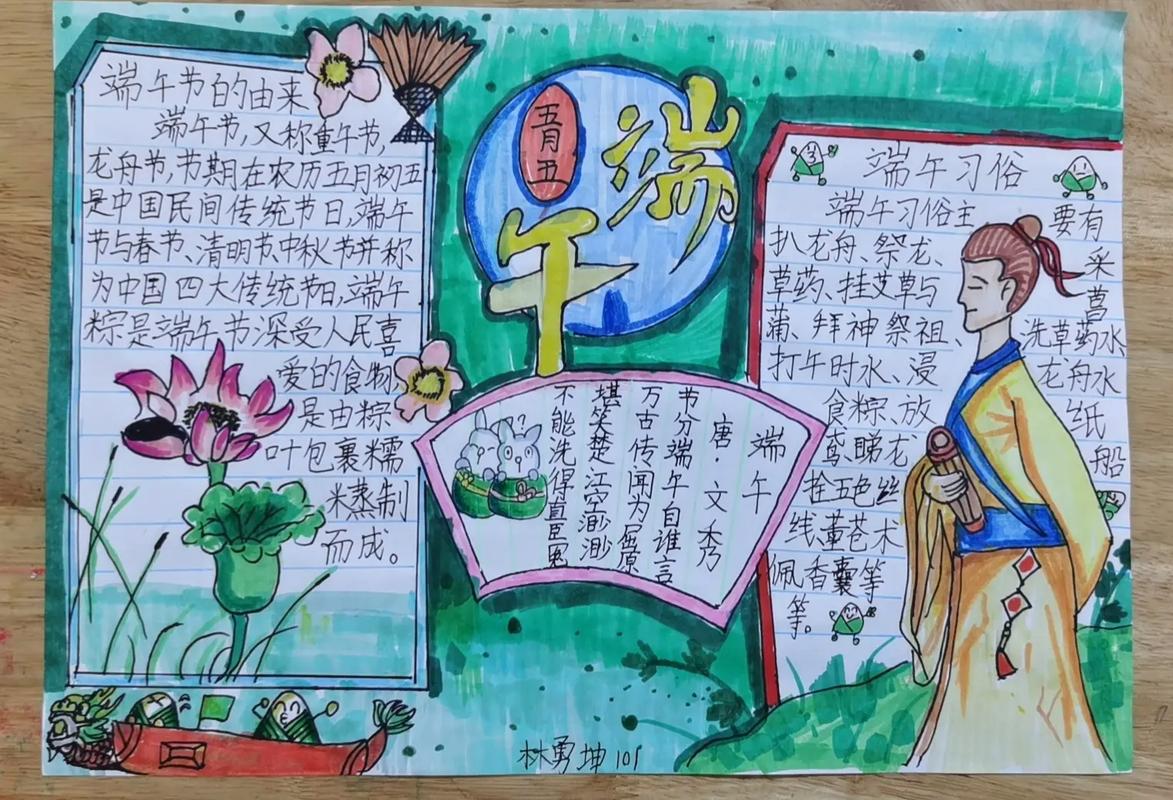 端午节的由来
端午节,又称重午节,
龙舟节,节期在农历五月初五
是中国民间传统节日,端午
节与春节、清明节、中秋节并称
为中国四大传统节日,端午
粽是端午节深受人民喜
爱的食物
是由粽
叶包裹糯
米蒸制
而成。
五月五
端午
端午
唐·文秀
节分端午自谁言
万古传闻为屈原
堪笑楚江空渺渺
不能洗得直臣冤
端午习俗
端午习俗主要有
扒龙舟、祭龙、采
草药、挂艾草与菖
蒲、拜神祭祖、洗草药水
打午时水、浸龙舟水
食粽、放纸
鸢、睇龙船
拴五色丝
线、薰苍术
佩香囊等
等。
林勇坤101